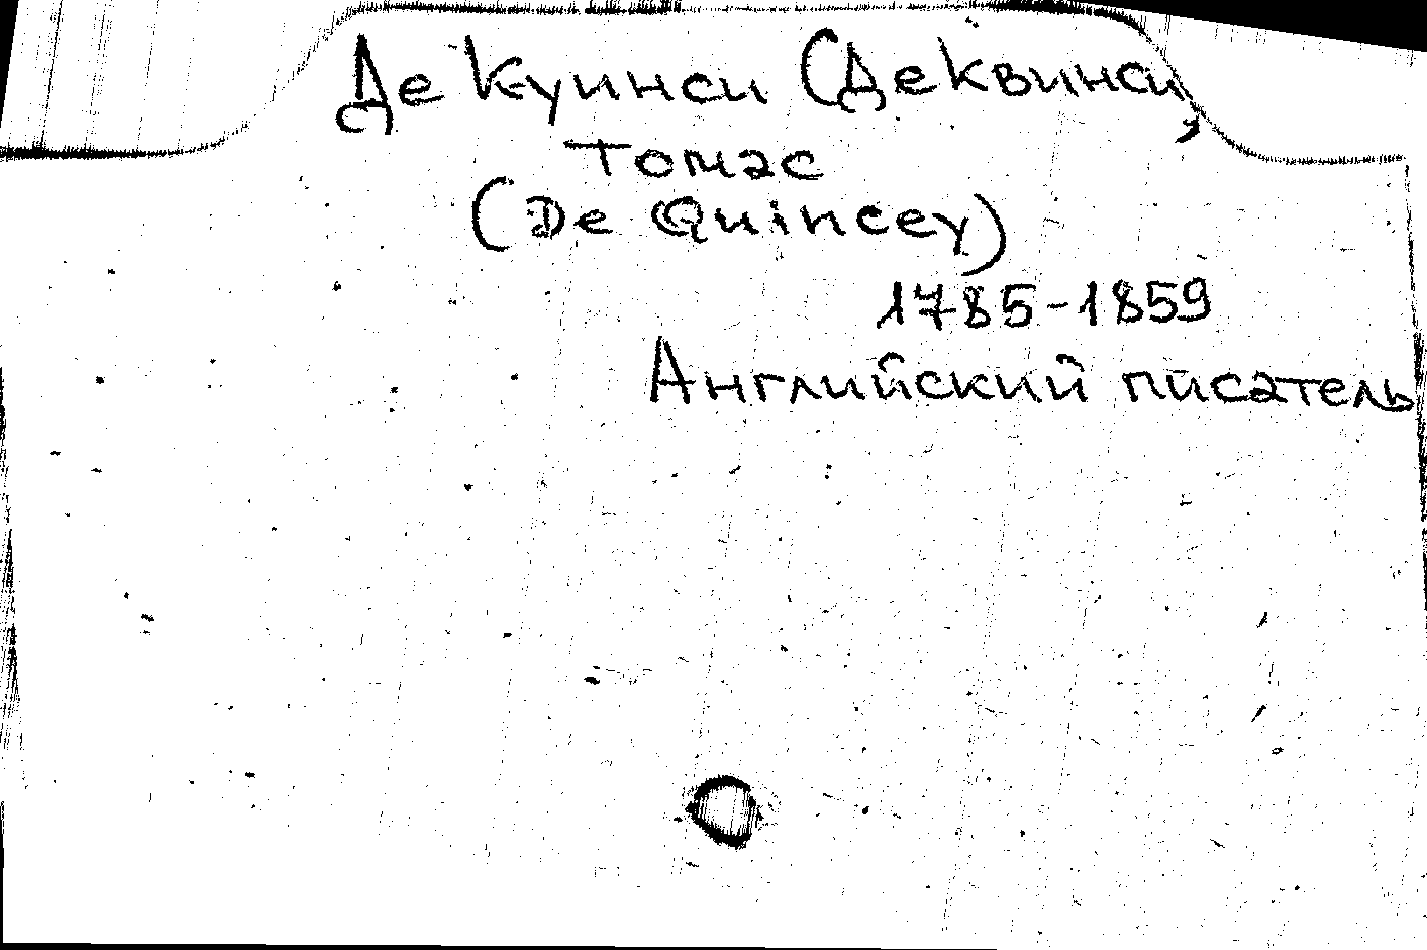 Де Куинси (Де Квинси,
Томас
(De Quincey)
1785-1859
Английский писатель